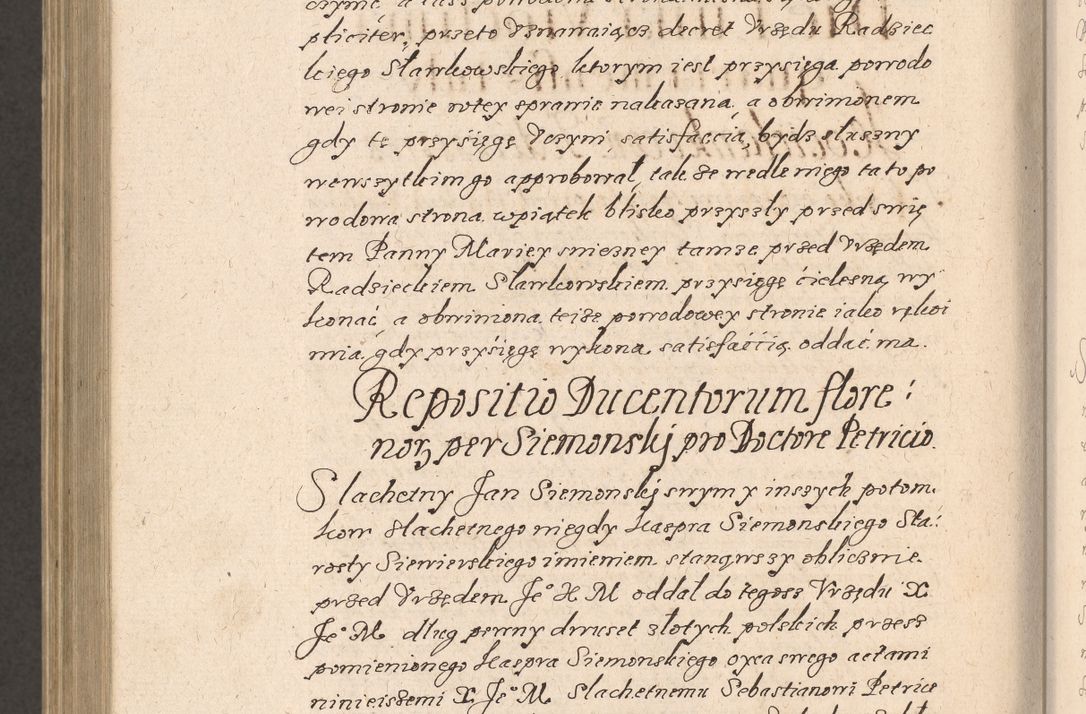 pliciter, przeto Vznawaiącz decret Vrzędu Radziec
kiego Sławkowskiego ktorym iest przysięga powodo
wei stronie wtey sprawie nakazana, a obwinionem
gdy tę przysięgę Vczyni satisfaccią, bydz słuszny
wewszytkim go approbował, tak że wedle niego ta to po
wodowa strona wpiątek blisko przyszły przed swię
tem Panny Mariey smieżney tamze przed Vrzędem
Radzieckiem Sławkowskiem przysięgę ćielesną wy
konać, a obwiniona teiże powodowey stronie iako rękoi
mia gdy przysięgę wykona satisfaććią oddać ma.
Repositio Ducentorum flore:
nor, per Siemonskj pro Doctore Petricio.
Slachetny Jan Siemonskj swym y inszych potom.
kow slachetnego niegdy Kaspra Siemonskiego Sta:
rosty Siewierskiego imieniem stanąwszy obliczwie
przed Vrzędem Je° X M oddal do tegosz Vrzędu X
Je° M dlug pewny dwuset złotych polskich przesz
pomienionego Kaspra Siemonskiego oyca swego actami
ninieiszemi X Je° M Slachetnemu Sebastianowi Petrice